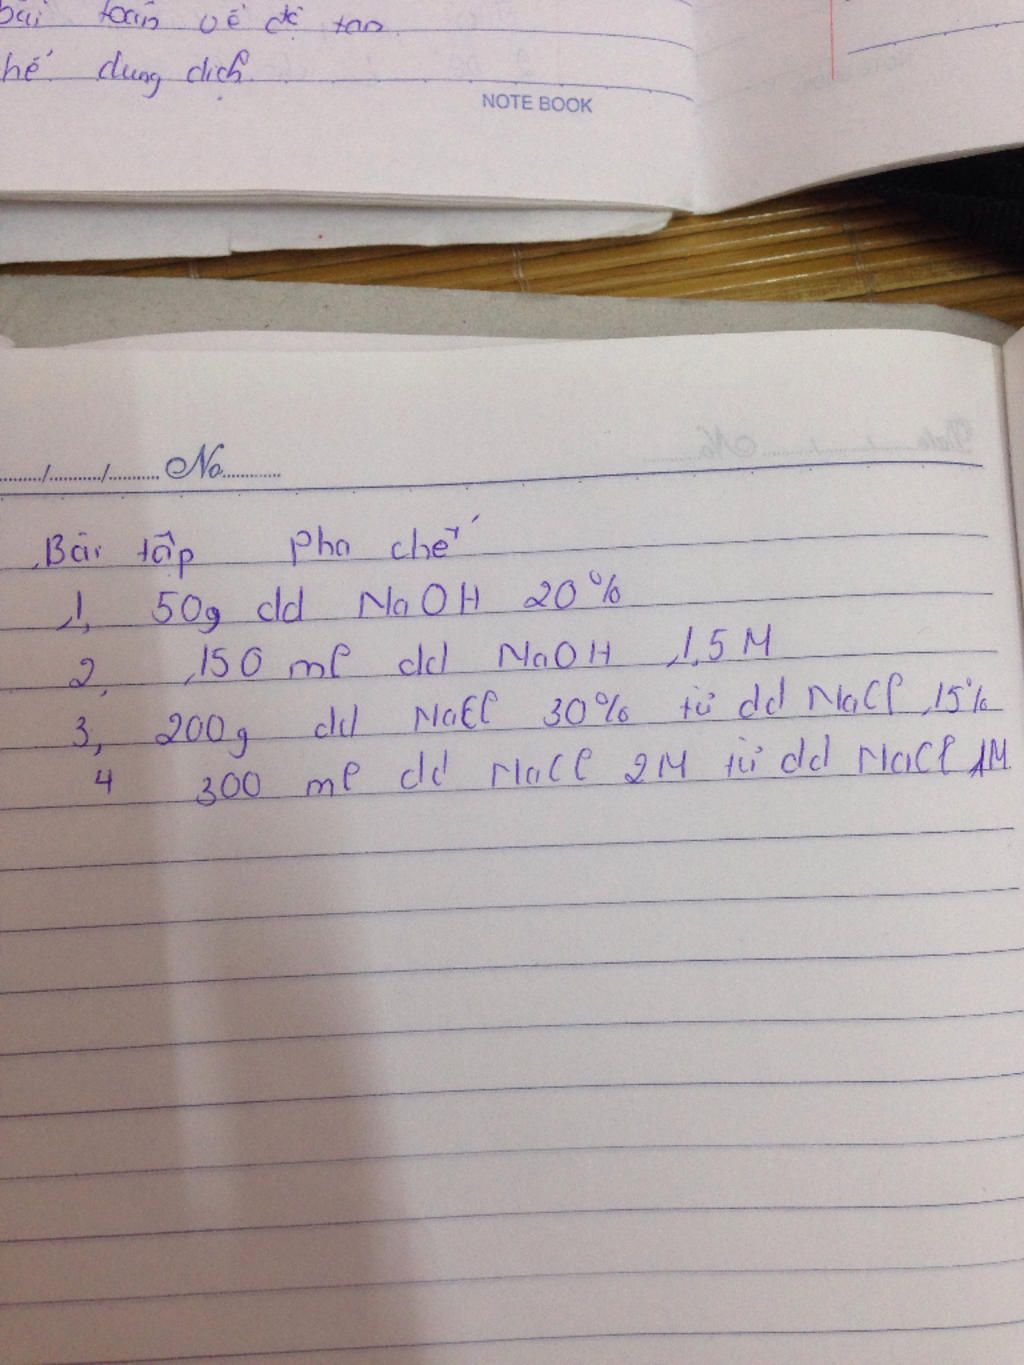 bài toán về độ tan
chế dung dịch
NOTE BOOK
Date No
...../......../......... No.
Bài tập Pha chế
1, 50g dd NaOH 20%
2, 150 ml dd NaOH 1,5M
3, 200g dd NaCl 30% từ dd NaCl 15%
4 300 ml dd NaCl 2M từ dd NaCl 1M